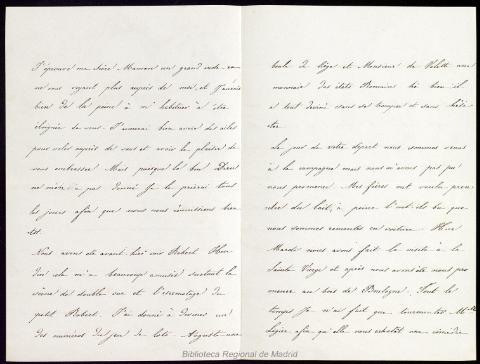 J'éprouve ma chère Maman un grand vide en
ne vous voyant plus auprès de moi et j'aurais
bien de la peine à m'habituer à être
éloignée de vous. J'aimerai bien avoir des ailes
pour voler auprès de vous et avoir le plaisir de
vous embrasser. Mais puisque le bon Dieu
ne m'en a pas donné je le prierai tous
les jours afin que nous nous réunissions bien
tôt.
Nous avons été avant hier voir Robert Hou
din cela m'a beaucoup amusée surtout la
scène de double vue et l'escamotage du
petit Robert. J'ai donné à deviner un
des numéros du jeu de loto Auguste une
boule de et Monsieur de une
monnaie des états Romains très bien il
a tout deviné sans se tromper et sans hési
ter.
Le jour de votre départ nous sommes venus
à la campagne mais nous n'avons pas pu
nous promener. Mes frères ont voulu pren
dre du lait, à peine l'ont-ils bu que
nous sommes remontés en voiture. Hier
Mardi nous avons fait la visite à la
Sainte Vierge et après nous avons été nous pro
mener au bois de Boulogne. Tout le
temps je n'ai fait que tourmenter Mlle
afin qu'elle nous une comédie
Biblioteca Regional de Madrid